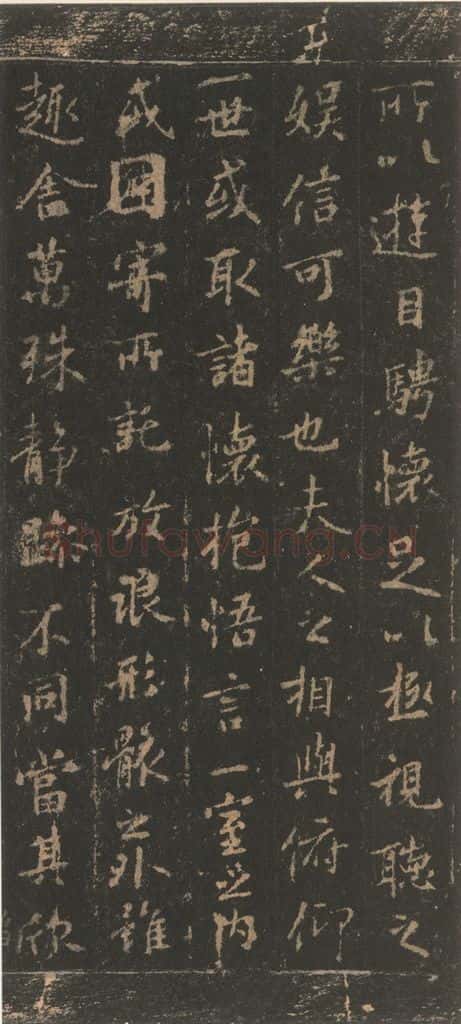 所以遊目騁懷足以極視聽之
娱信可樂也夫人之相與俯仰
一世或取諸懷抱悟言一室之内
或因寄所託放浪形骸之外雖
趣舍萬殊静躁不同當其欣
shufawang.cn